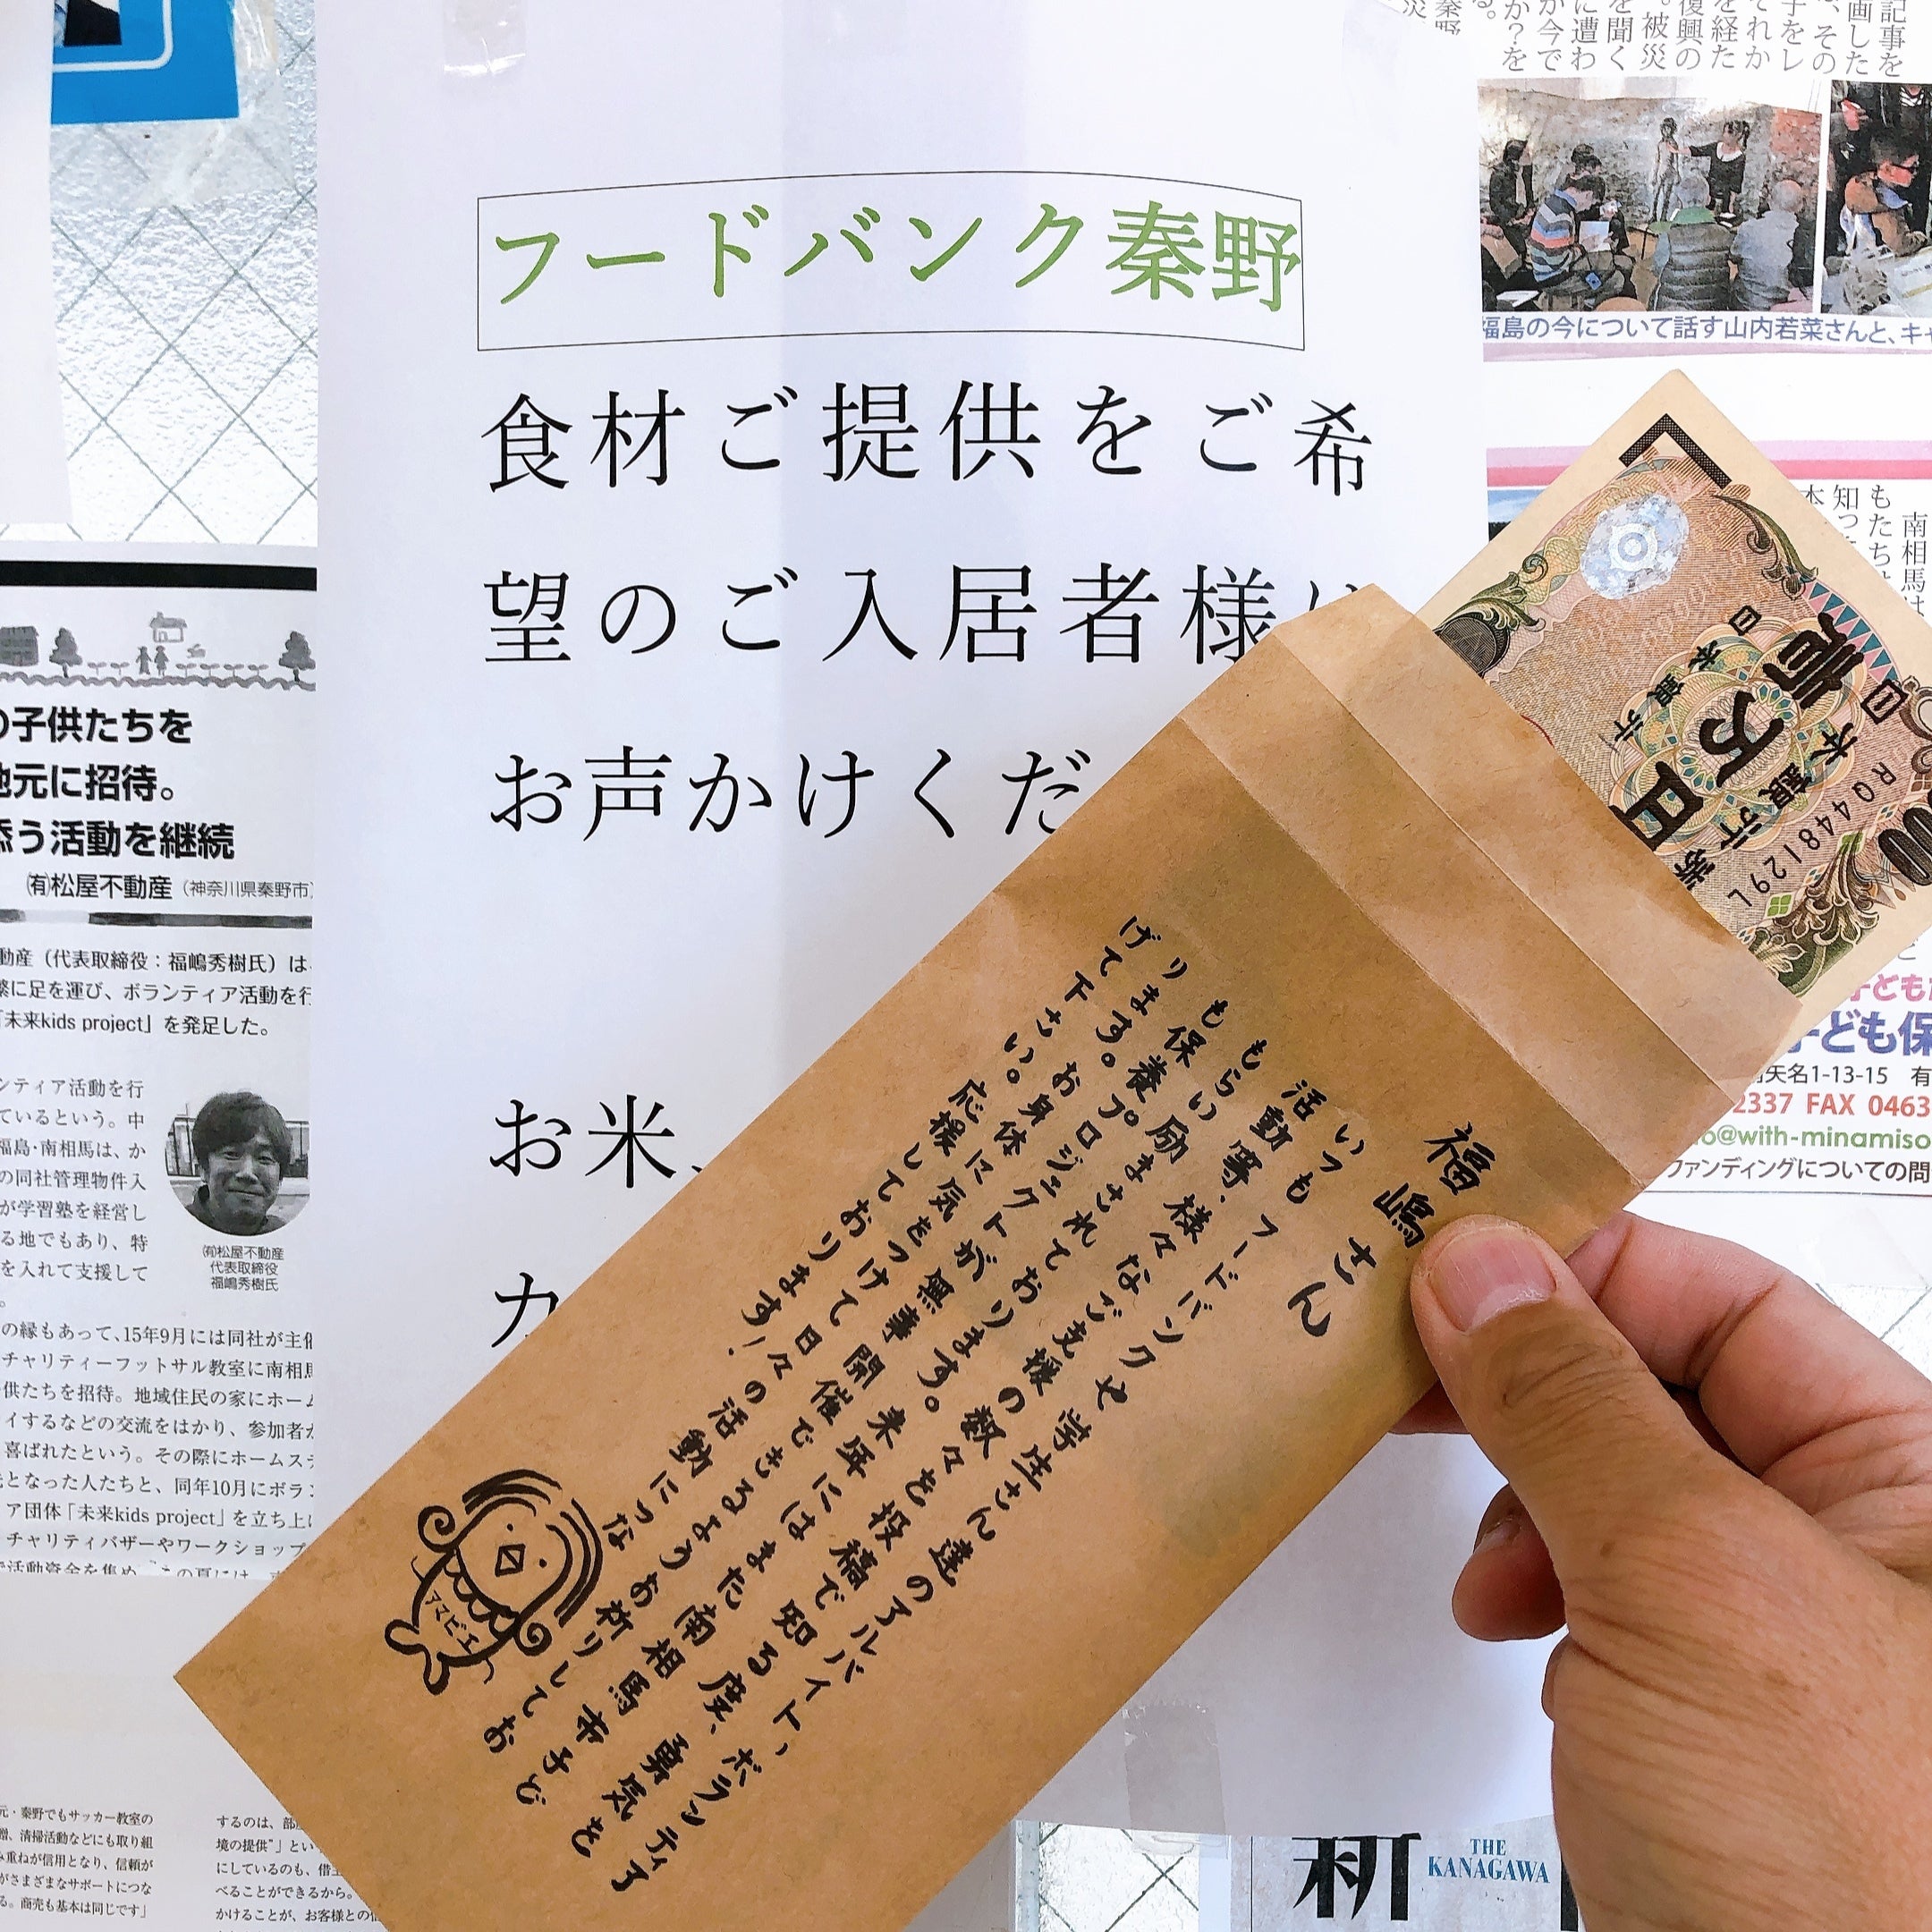 フードバンク秦野
食材ご提供をご希
望のご入居者様
お声かけくだ
お米
カ
福嶋さん
いつもフードバンクや学生さん達のアルバイト、ボランティア
活動等、様々なご支援の数々を投稿で知る度、勇気を
もらい励まされております。来年にはまた南相馬市子ど
も保養プロジェクトが無事開催できるようお祈りしてお
ります。お身体に気をつけて日々の活動につな
げて下さい。応援しております!
アマビエ
日本銀行券
壱万円
日本銀行
RQ448129L
の子供たちを
地元に招待。
添う活動を継続
㈲松屋不動産（神奈川県秦野市）
動産（代表取締役：福嶋秀樹氏）は、
繁に足を運び、ボランティア活動を行
「未来kids project」を発足した。
ンティア活動を行
ているという。中
福島・南相馬は、か
の同社管理物件入
が学習塾を経営し
る地でもあり、特
を入れて支援して
。
㈲松屋不動産
代表取締役
福嶋秀樹氏
の縁もあって、15年9月には同社が主催
チャリティーフットサル教室に南相馬
供たちを招待。地域住民の家にホーム
イするなどの交流をはかり、参加者か
喜ばれたという。その際にホームステ
元となった人たちと、同年10月にボラン
ア団体「未来kids project」を立ち上げ
チャリティバザーやワークショップ
で活動資金を集め、この夏には、
元・秦野でもサッカー教室の
贈、清掃活動などにも取り組
み重ねが信用となり、信頼が
がさまざまなサポートにつな
る。商売も基本は同じです」
するのは、部
境の提供”」とい
にしているのも、借主
べることができるから。
かけることが、お客様との信
記事を
画した
、その
子をレ
それか
を経た
復興の
。被災
を聞く
に遭わ
が今で
か？を
る。
秦野
災
福島の今について話す山内若菜さんと、キャ
南相馬は
もたち
知っ
本
子ども
子ども保
南矢名1-13-15 有
2337 FAX 0463
o@with-minamiso
ファンディングについての問
新
THE
KANAGAWA